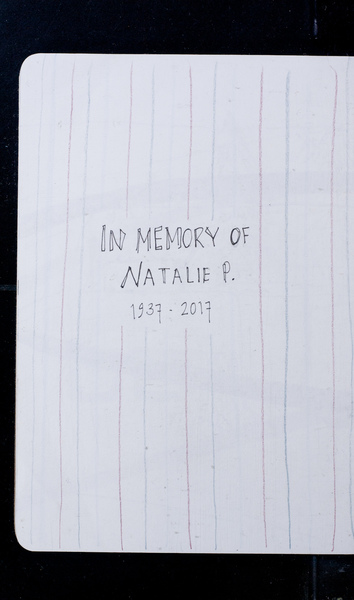 IN MEMORY OF
NATALIE P.
1937 - 2017